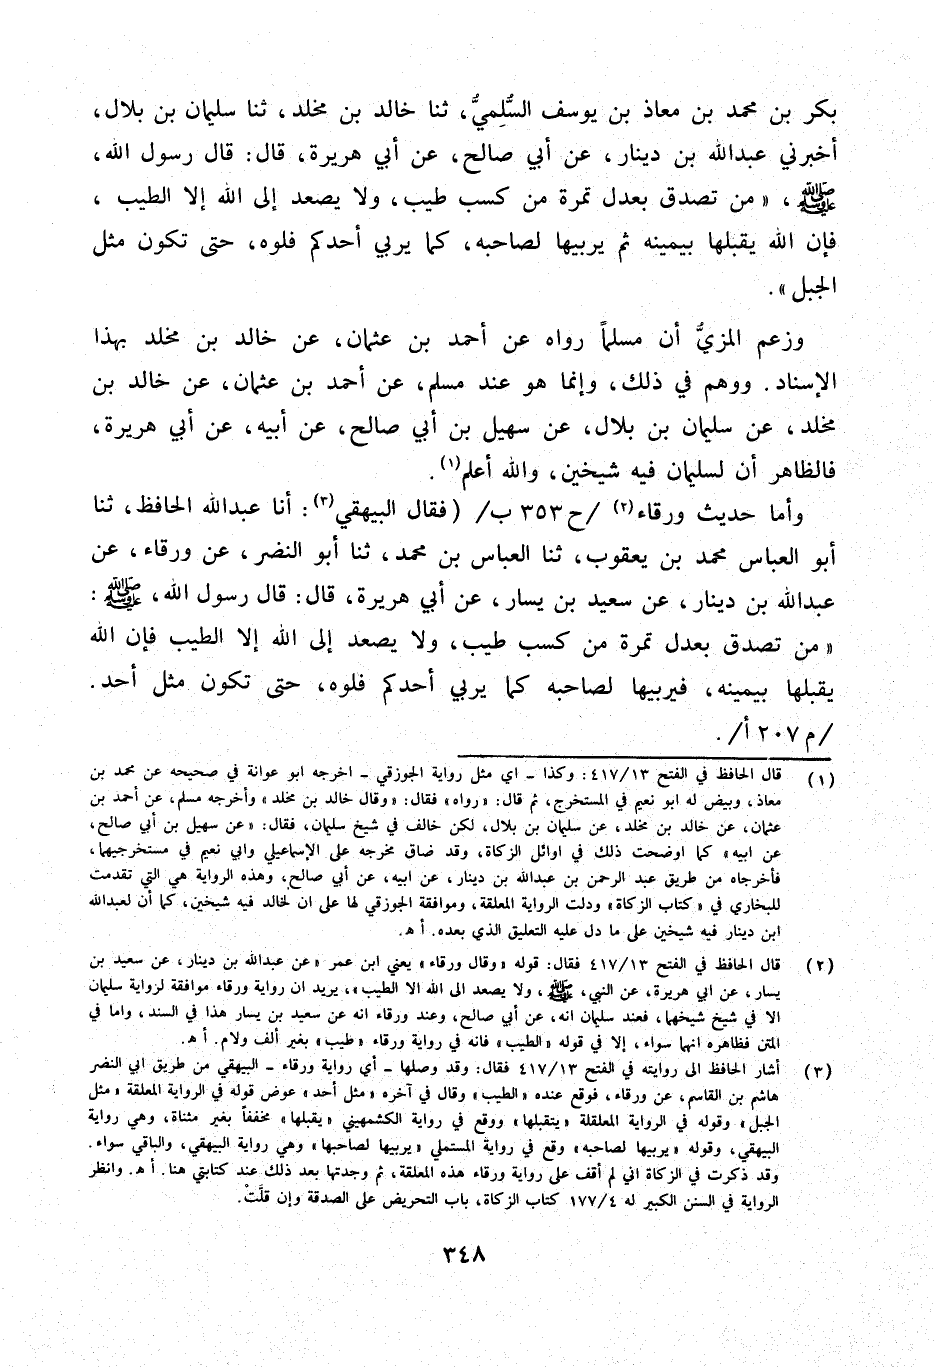 بكر بن محمد بن معاذ بن يوسف السُّلِميُّ، ثنا خالد بن مخلد، ثنا سليمان بن بلال،
أخبرني عبدالله بن دينار، عن أبي صالح، عن أبي هريرة، قال: قال رسول الله،
ﷺ، «من تصدق بعدل تمرة من كسب طيب، ولا يصعد إلى الله إلا الطيب،
فإن الله يقبلها بيمينه ثم يربيها لصاحبه، كما يربي أحدكم فلوه، حتى تكون مثل
الجبل».
وزعم المزيُّ أن مسلماً رواه عن أحمد بن عثمان، عن خالد بن مخلد بهذا
الإسناد. ووهم في ذلك، وإنما هو عند مسلم، عن أحمد بن عثمان، عن خالد بن
مخلد، عن سليمان بن بلال، عن سهيل بن أبي صالح، عن أبيه، عن أبي هريرة،
فالظاهر أن لسليمان فيه شيخين، والله أعلم(١).
وأما حديث ورقاء(٢) /ح ٣٥٣ ب/ (فقال البيهقي(٣): أنا عبدالله الحافظ، ثنا
أبو العباس محمد بن يعقوب، ثنا العباس بن محمد، ثنا أبو النضر، عن ورقاء، عن
عبدالله بن دينار، عن سعيد بن يسار، عن أبي هريرة، قال: قال رسول الله، ﷺ:
«من تصدق بعدل تمرة من كسب طيب، ولا يصعد إلى الله إلا الطيب فإن الله
يقبلها بيمينه، فيربيها لصاحبه كما يربي أحدكم فلوه، حتى تكون مثل أحد.
/م ٢٠٧ أ/.
(١) قال الحافظ في الفتح ٤١٧/١٣: وكذا - اي مثل رواية الجوزقي - اخرجه ابو عوانة في صحيحه عن محمد بن
معاذ، وبيض له ابو نعيم في المستخرج، ثم قال: «رواه» فقال: «وقال خالد بن مخلد» وأخرجه مسلم، عن أحمد بن
عثمان، عن خالد بن مخلد، عن سليمان بن بلال، لكن خالف في شيخ سليمان، فقال: «عن سهيل بن أبي صالح،
عن ابيه» كما اوضحت ذلك في اوائل الزكاة، وقد ضاق مخرجه على الإسماعيلي وابي نعيم في مستخرجيهما،
فأخرجاه من طريق عبد الرحمن بن عبدالله بن دينار، عن ابيه، عن أبي صالح، وهذه الرواية هي التي تقدمت
للبخاري في «كتاب الزكاة» ودلت الرواية المعلقة، وموافقة الجوزقي لها على ان لخالد فيه شيخين، كما أن لعبدالله
ابن دينار فيه شيخين على ما دل عليه التعليق الذي بعده. أ هـ.
(٢) قال الحافظ في الفتح ٤١٧/١٣ فقال: قوله «وقال ورقاء» يعني ابن عمر «عن عبدالله بن دينار، عن سعيد بن
يسار، عن ابي هريرة، عن النبي، ﷺ، ولا يصعد الى الله الا الطيب»، يريد ان رواية ورقاء موافقة لرواية سليمان
الا في شيخ شيخهما، فعند سليمان انه، عن أبي صالح، وعند ورقاء انه عن سعيد بن يسار هذا في السند، واما في
المتن فظاهره انهما سواء، إلا في قوله «الطيب» فانه في رواية ورقاء «طيب» بغير ألف ولام. أ هـ.
(٣) أشار الحافظ الى روايته في الفتح ٤١٧/١٣ فقال: وقد وصلها - أي رواية ورقاء - البيهقي من طريق ابي النضر
هاشم بن القاسم، عن ورقاء، فوقع عنده «الطيب» وقال في آخره «مثل أحد» عوض قوله في الرواية المعلقة «مثل
الجبل» وقوله في الرواية المعلقلة «يتقبلها» ووقع في رواية الكشمهيني «يقبلها» مخففاً بغير مثناة، وهي رواية
البيهقي، وقوله «يربيها لصاحبه» وقع في رواية المستملي «يربيها لصاحبها» وهي رواية البيهقي، والباقي سواء.
وقد ذكرت في الزكاة اني لم أقف على رواية ورقاء هذه المعلقة، ثم وجدتها بعد ذلك عند كتابتي هنا. أ هـ. وانظر
الرواية في السنن الكبير له ١٧٧/٤ كتاب الزكاة، باب التحريض على الصدقة وإن قلَّتْ.
٣٤٨